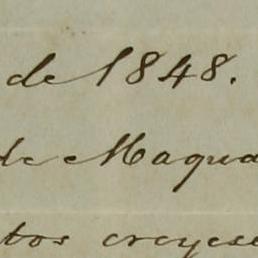 de 1848.
de Maqua
tos creyese